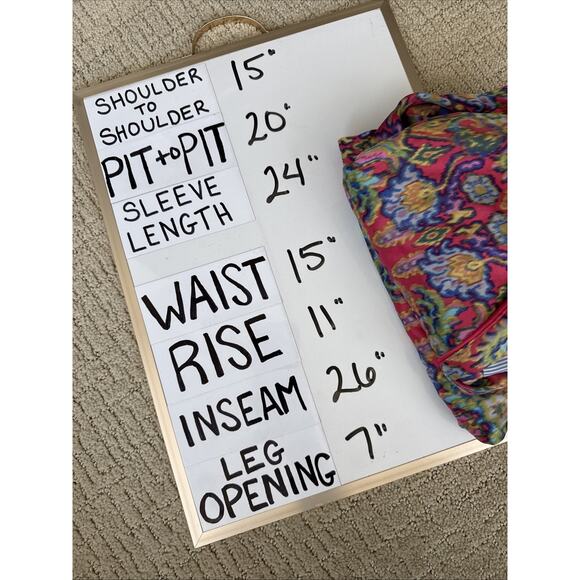 SHOULDER 15"
TO
SHOULDER
PIT to PIT 20"
SLEEVE 24"
LENGTH
WAIST 15"
RISE 11"
INSEAM 26"
LEG 7"
OPENING